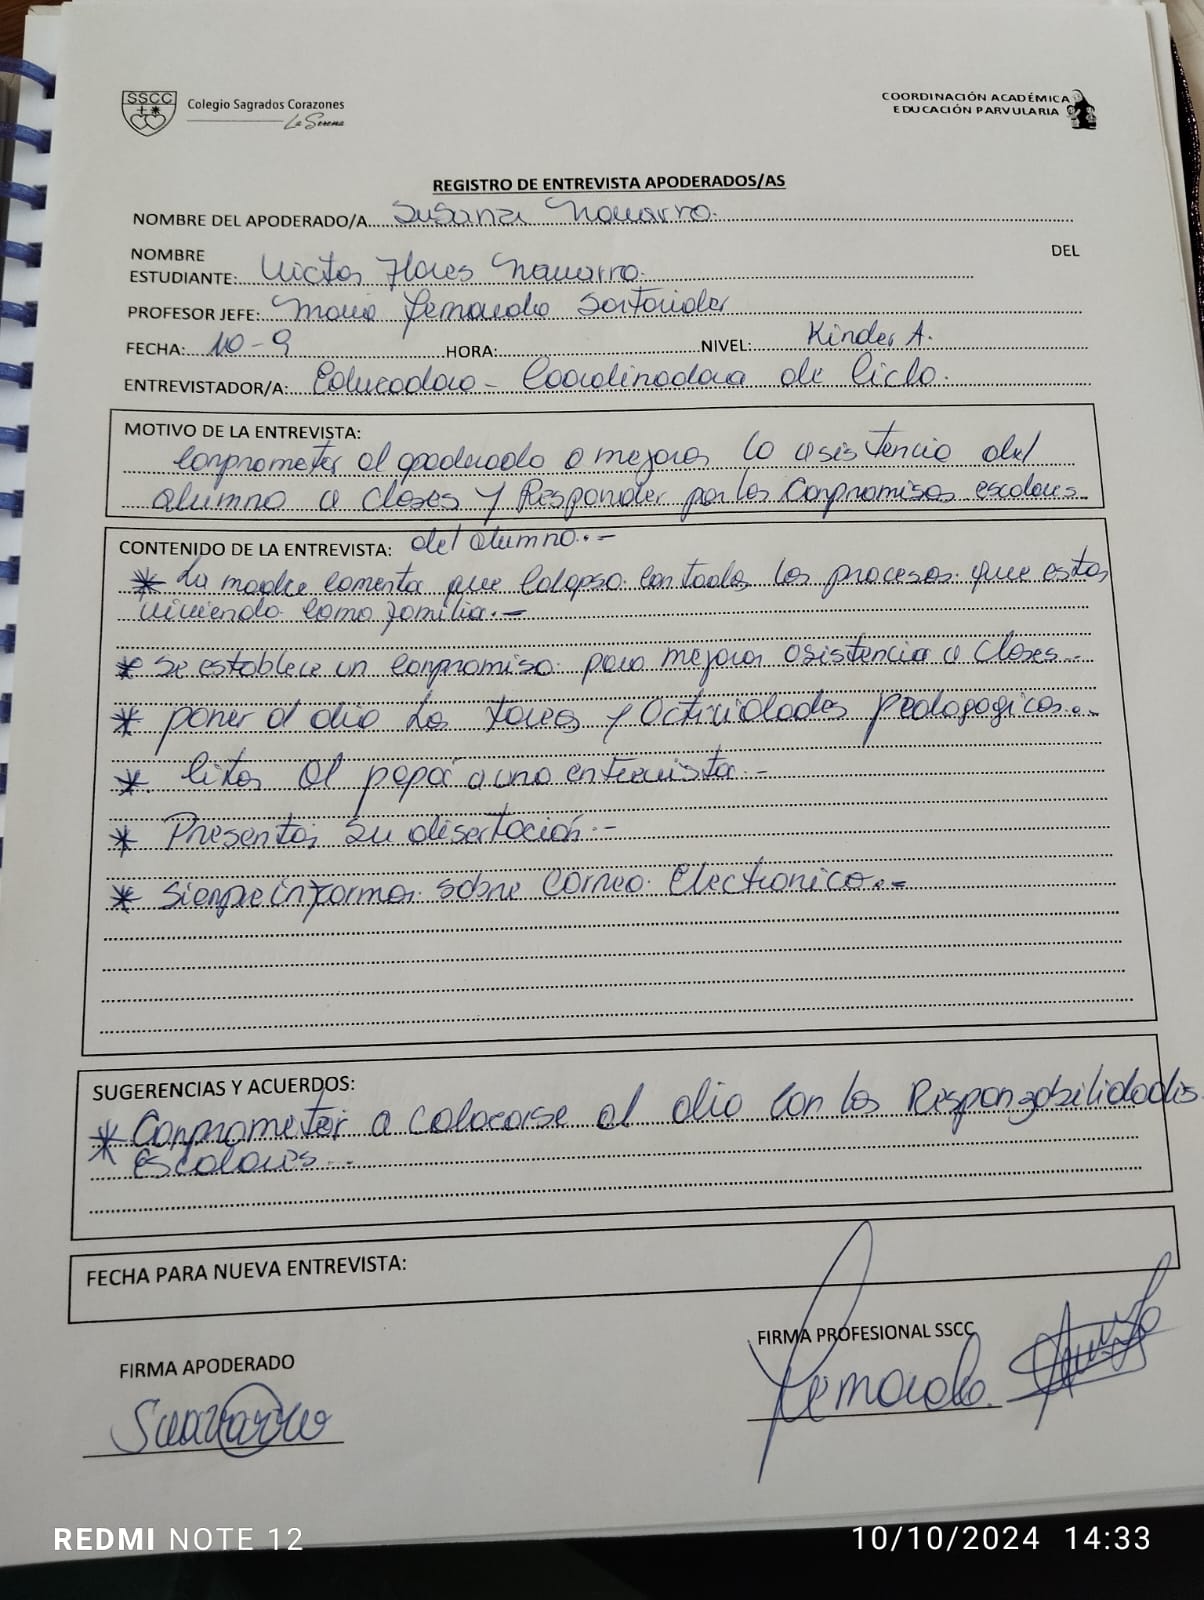 SSCC
Colegio Sagrados Corazones
La Serena
COORDINACIÓN ACADÉMICA
EDUCACIÓN PARVULARIA
REGISTRO DE ENTREVISTA APODERADOS/AS
NOMBRE DEL APODERADO/A Susana Navarro.
NOMBRE DEL
ESTUDIANTE: Victor Flores Navarro.
PROFESOR JEFE: Maria Fernanda Santander
FECHA: 10-9 HORA: NIVEL: Kinder A.
ENTREVISTADOR/A: Educadora - Coordinadora de Ciclo.
MOTIVO DE LA ENTREVISTA:
Conprometer al apoderado a mejorar la asistencia del
alumno a clases y Responder por los Conpromisos escolares
del alumno..-
CONTENIDO DE LA ENTREVISTA:
* La madre comenta que Colapso con todos los procesos que estan
viviendo como familia..-
* se establece un conpromiso para mejorar asistencia a clases..-
* poner al dia las tareas y actividades pedagogicas..-
* Citar al papá a una entrevista.-
* Presentar su disertación.-
* Sienpre informar sobre Correo Electronico..-
SUGERENCIAS Y ACUERDOS:
* Conprometer a colocarse al dia con las Responzabilidades
escolares...
FECHA PARA NUEVA ENTREVISTA:
FIRMA APODERADO
FIRMA PROFESIONAL SSCC
REDMI NOTE 12
10/10/2024 14:33